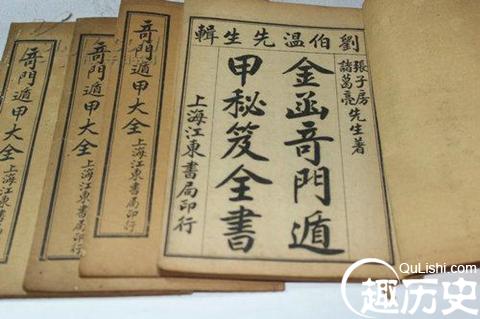 劉伯温先生輯
張子房
諸葛亮先生著
金函竒門遁
甲秘笈全書
上海江東書局印行
竒門遁甲大全
上海江東書局印行
竒門遁甲大全
上海江東書局印行
竒門遁甲大全
上海江東書局印行
QuLiShi.com
趣历史